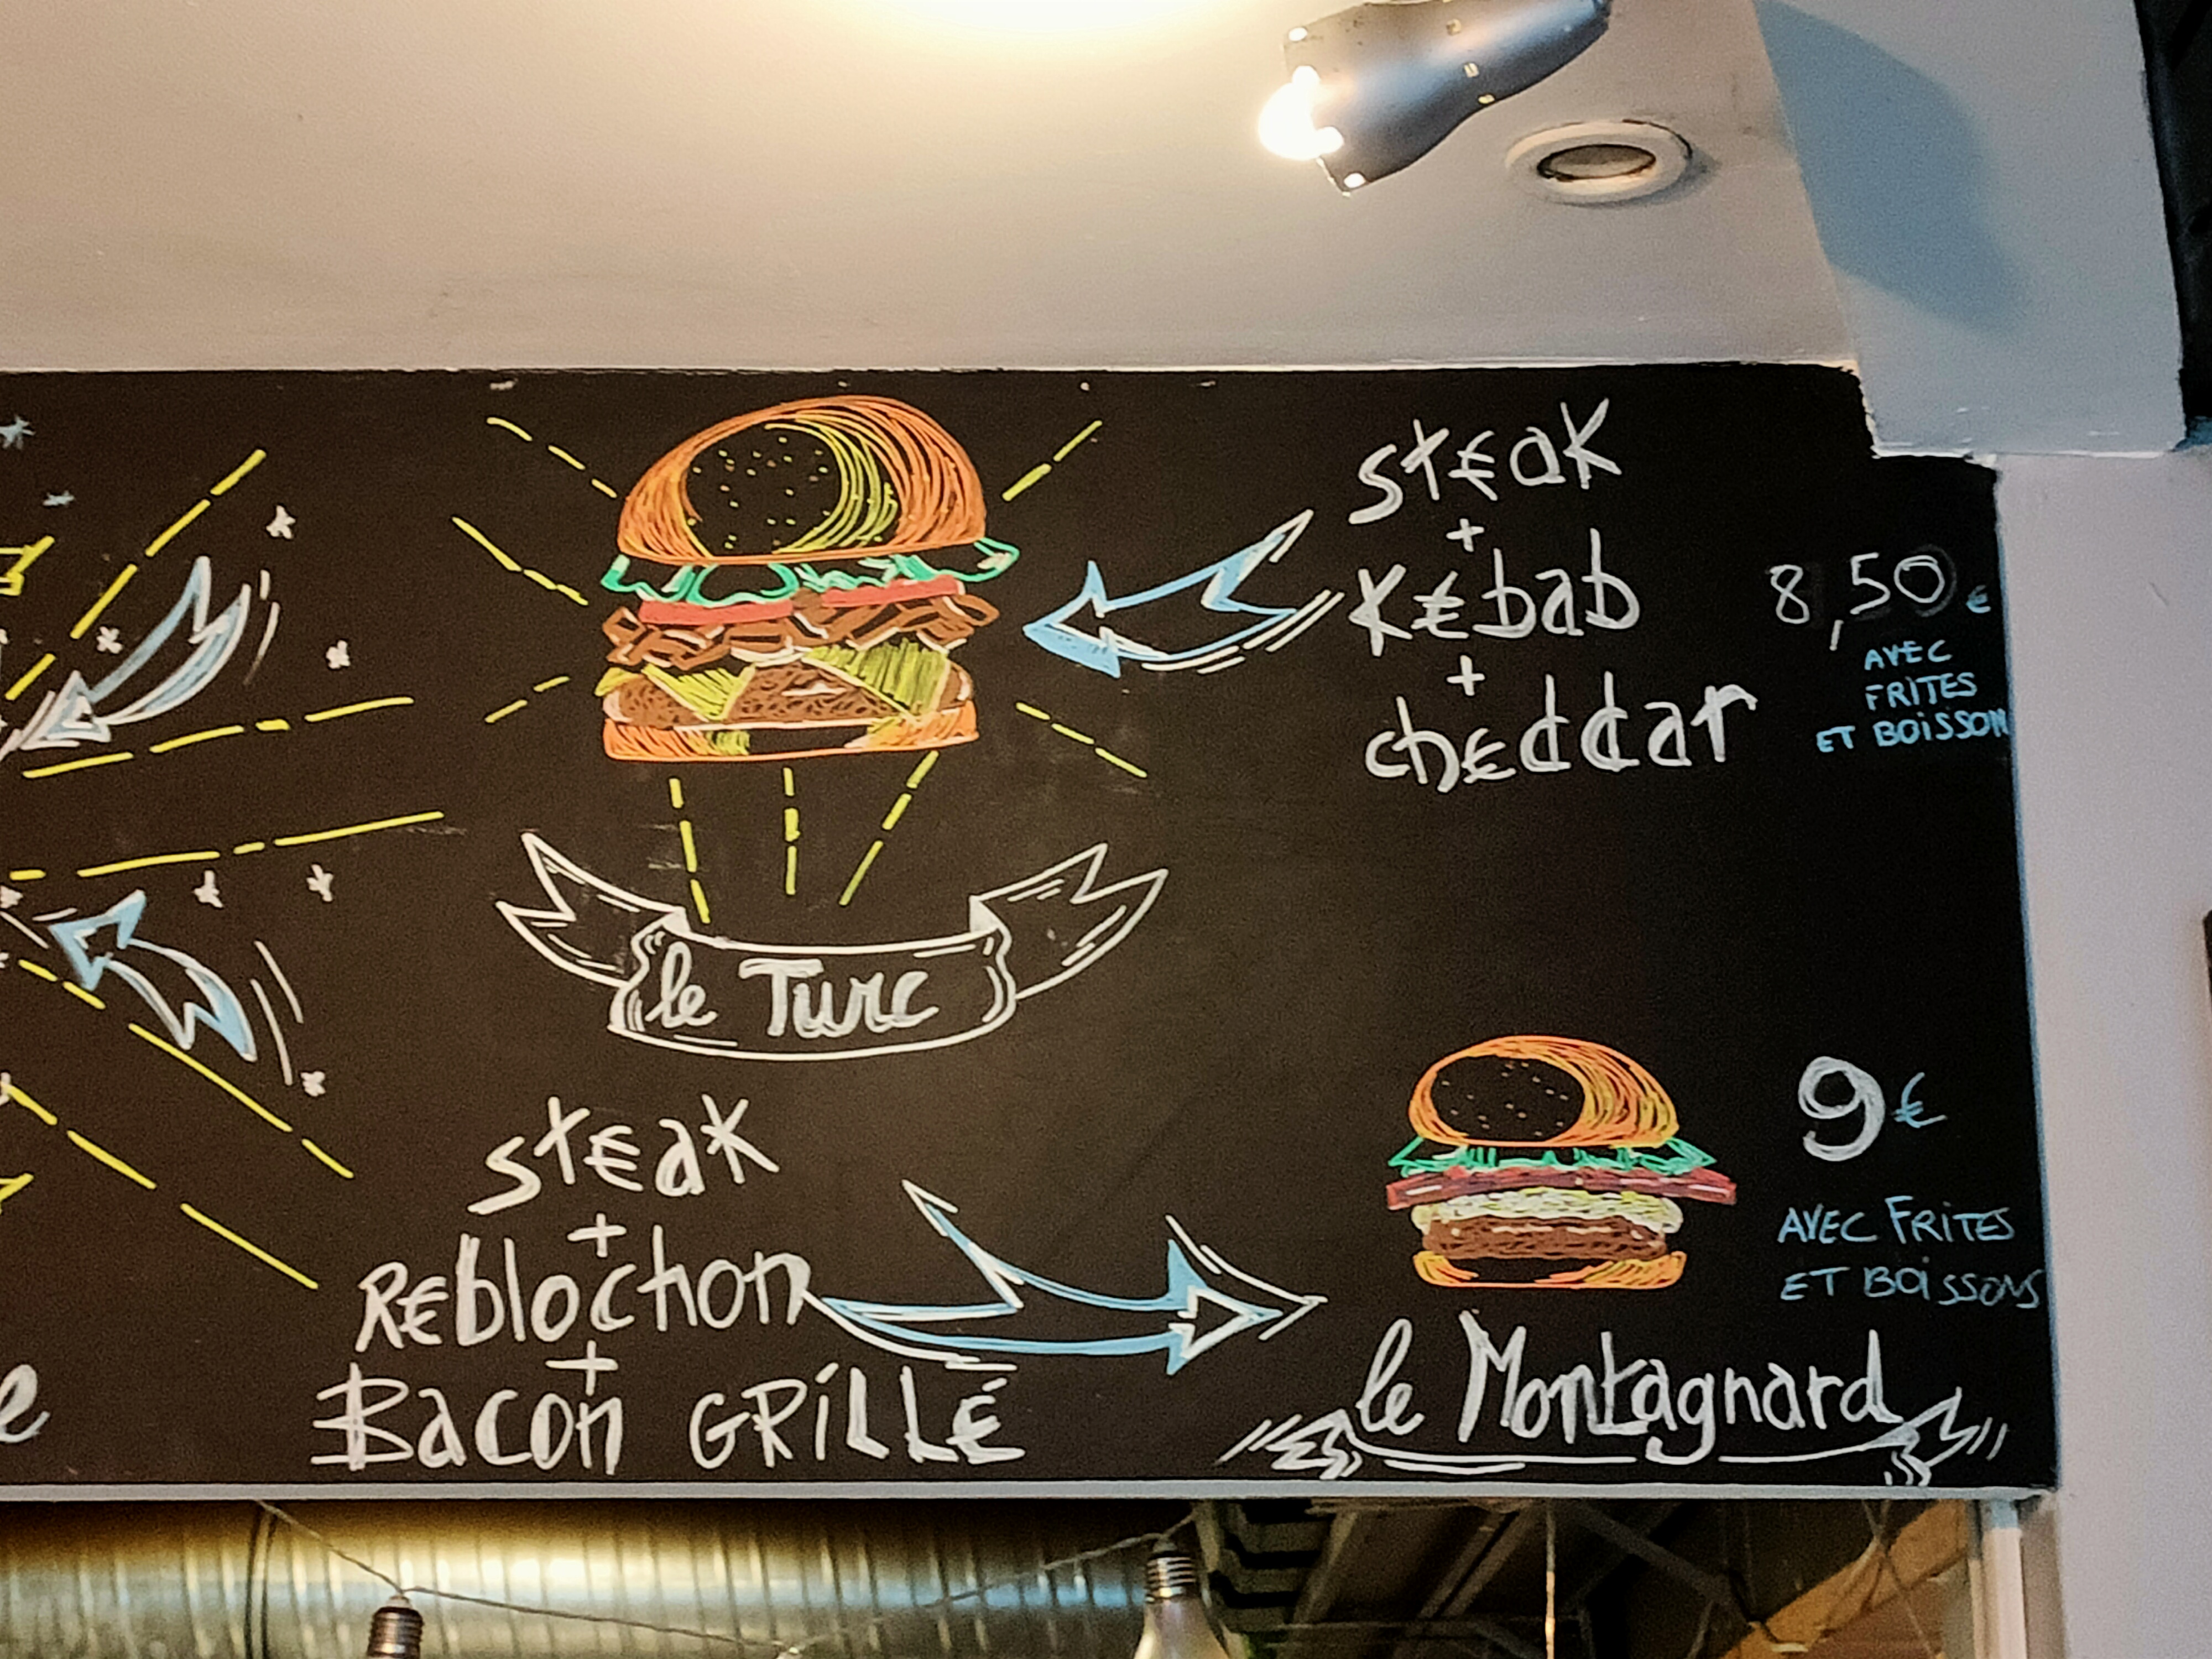 steak
+
Kebab
+
cheddar
8,50€
AVEC
FRITES
ET BOISSON
le Turc
steak
+
Reblochon
+
Bacon GRILLÉ
9€
AVEC FRITES
ET BOISSONS
le Montagnard